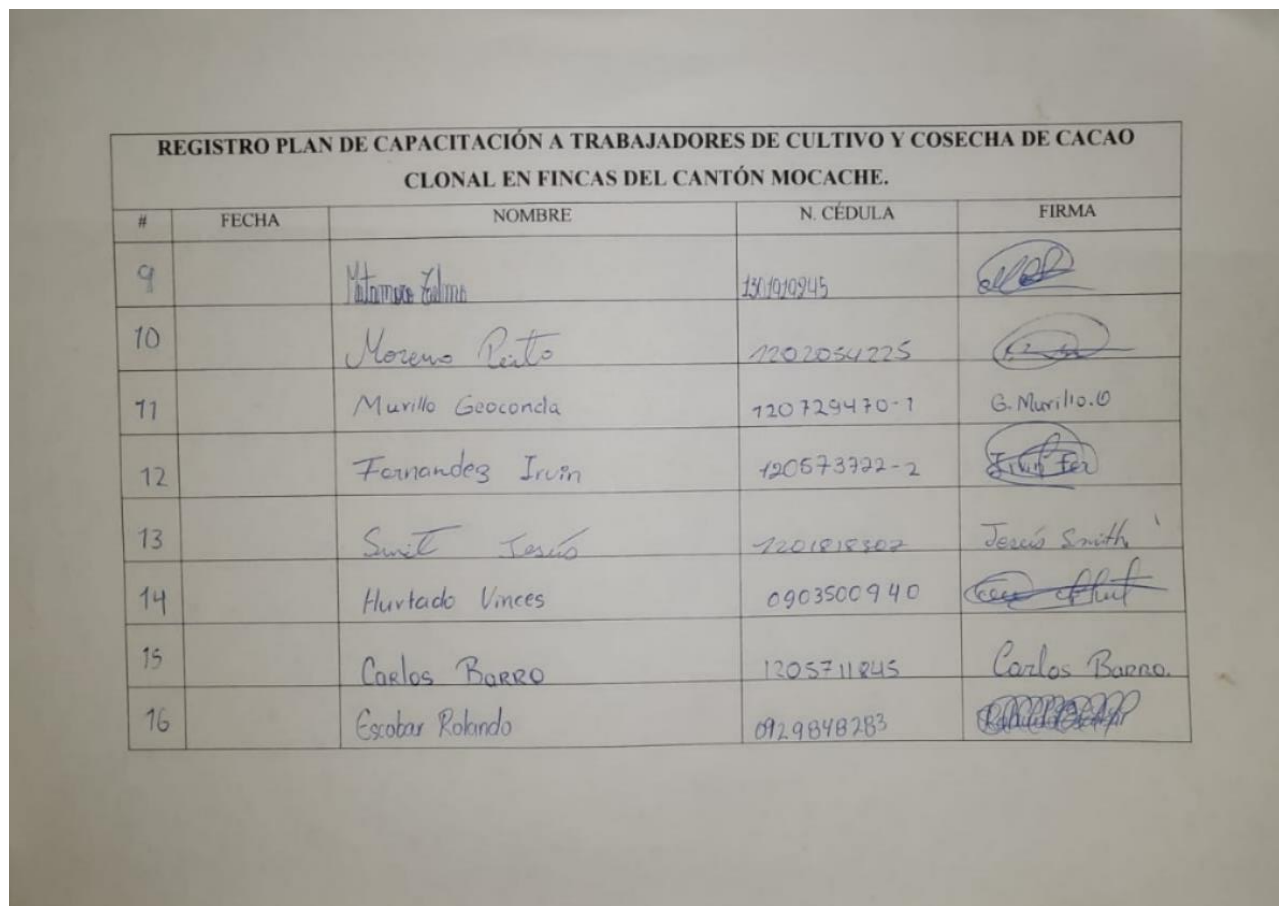 REGISTRO PLAN DE CAPACITACIÓN A TRABAJADORES DE CULTIVO Y COSECHA DE CACAO
CLONAL EN FINCAS DEL CANTÓN MOCACHE.
# FECHA NOMBRE N. CÉDULA FIRMA
9
10 Moreno 1202054225
11 Murillo Geoconda 120729470-1 G. Murillo.O
12 Fernandez Irvin Irvin Fer
13 Smit Jesús 1201818302 Jesús Smith
14 Hurtado Vinces 0903500940
15 Carlos Barro 1205711845 Carlos Barro.
16 Escobar Rolando 0929848283